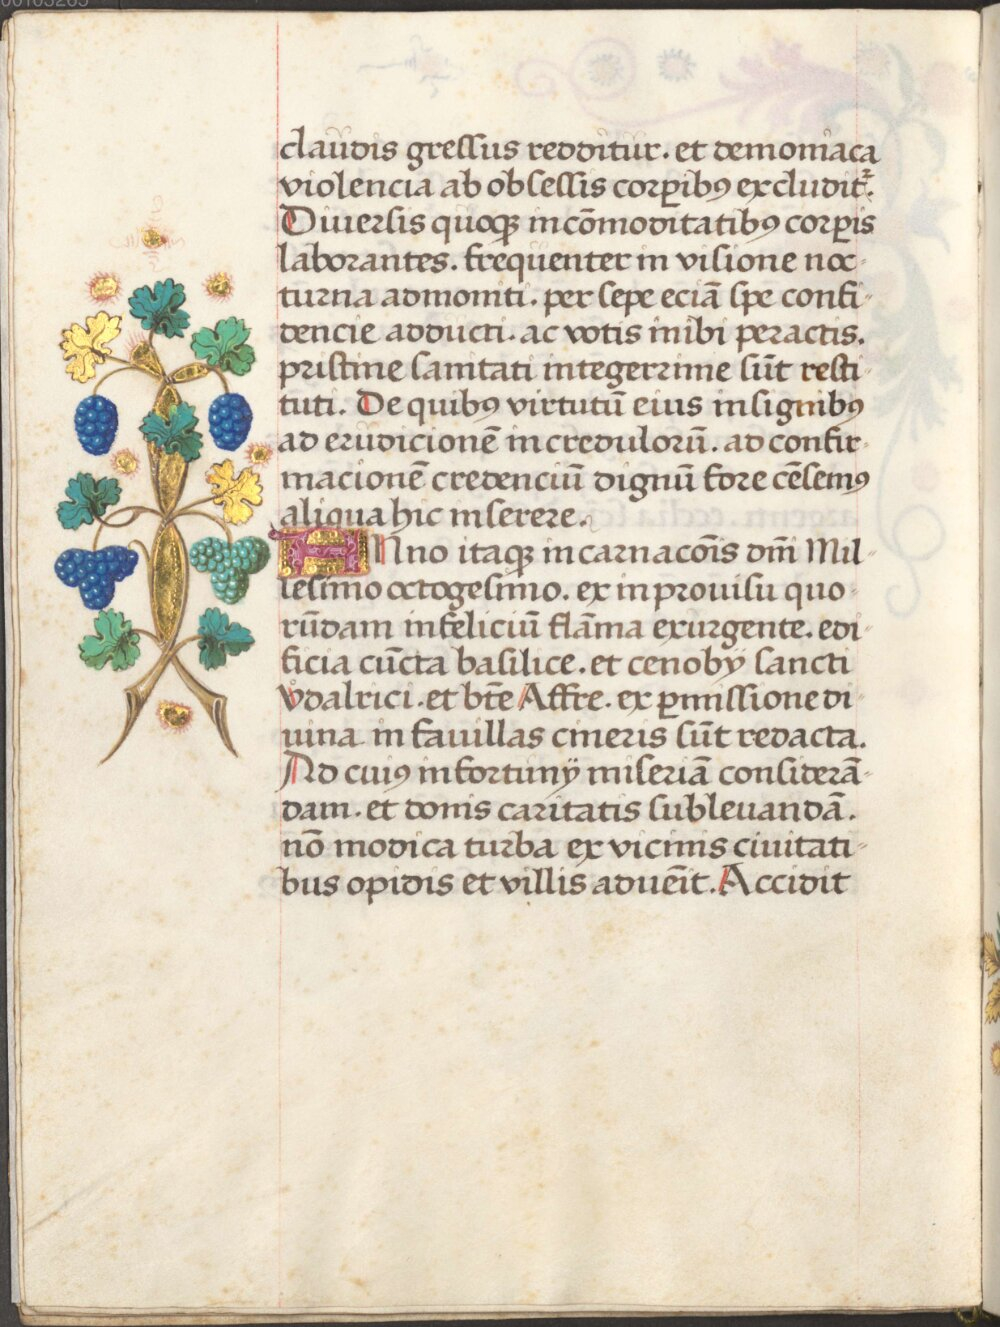 claudis gressus redditur. et demoniaca
violencia ab obsessis corꝑibꝰ excludit᷑.
Diuersis quoqꝫ incōmoditatibꝰ corꝑis
laborantes. frequenter in visione noc-
turna admoniti. per sepe eciā spe confi-
dencie adducti. ac votis inibi peractis.
pristine sanitati integerrime sūt resti-
tuti. De quibꝰ virtutū eius insignibꝰ
ad erudicionē incredulorū. ad confir-
macionē credenciū dignū fore cēsemꝰ
aliqua hic inserere.
Anno itaqꝫ incarnacōis dn̄i Mil-
lesimo octogesimo. ex inprouisu quo-
rūdam infeliciū flāma exurgente. edi-
ficia cūcta basilice. et cenobÿ sancti
vͦdalrici. et bt̄e Affre. ex ꝑmissione di-
uina in fauillas cineris sūt redacta.
Ad cuiꝰ infortunÿ miseriā considerā-
dam. et donis caritatis subleuandā.
nō modica turba ex vicinis ciuitati-
bus opidis et villis aduēit. Accidit